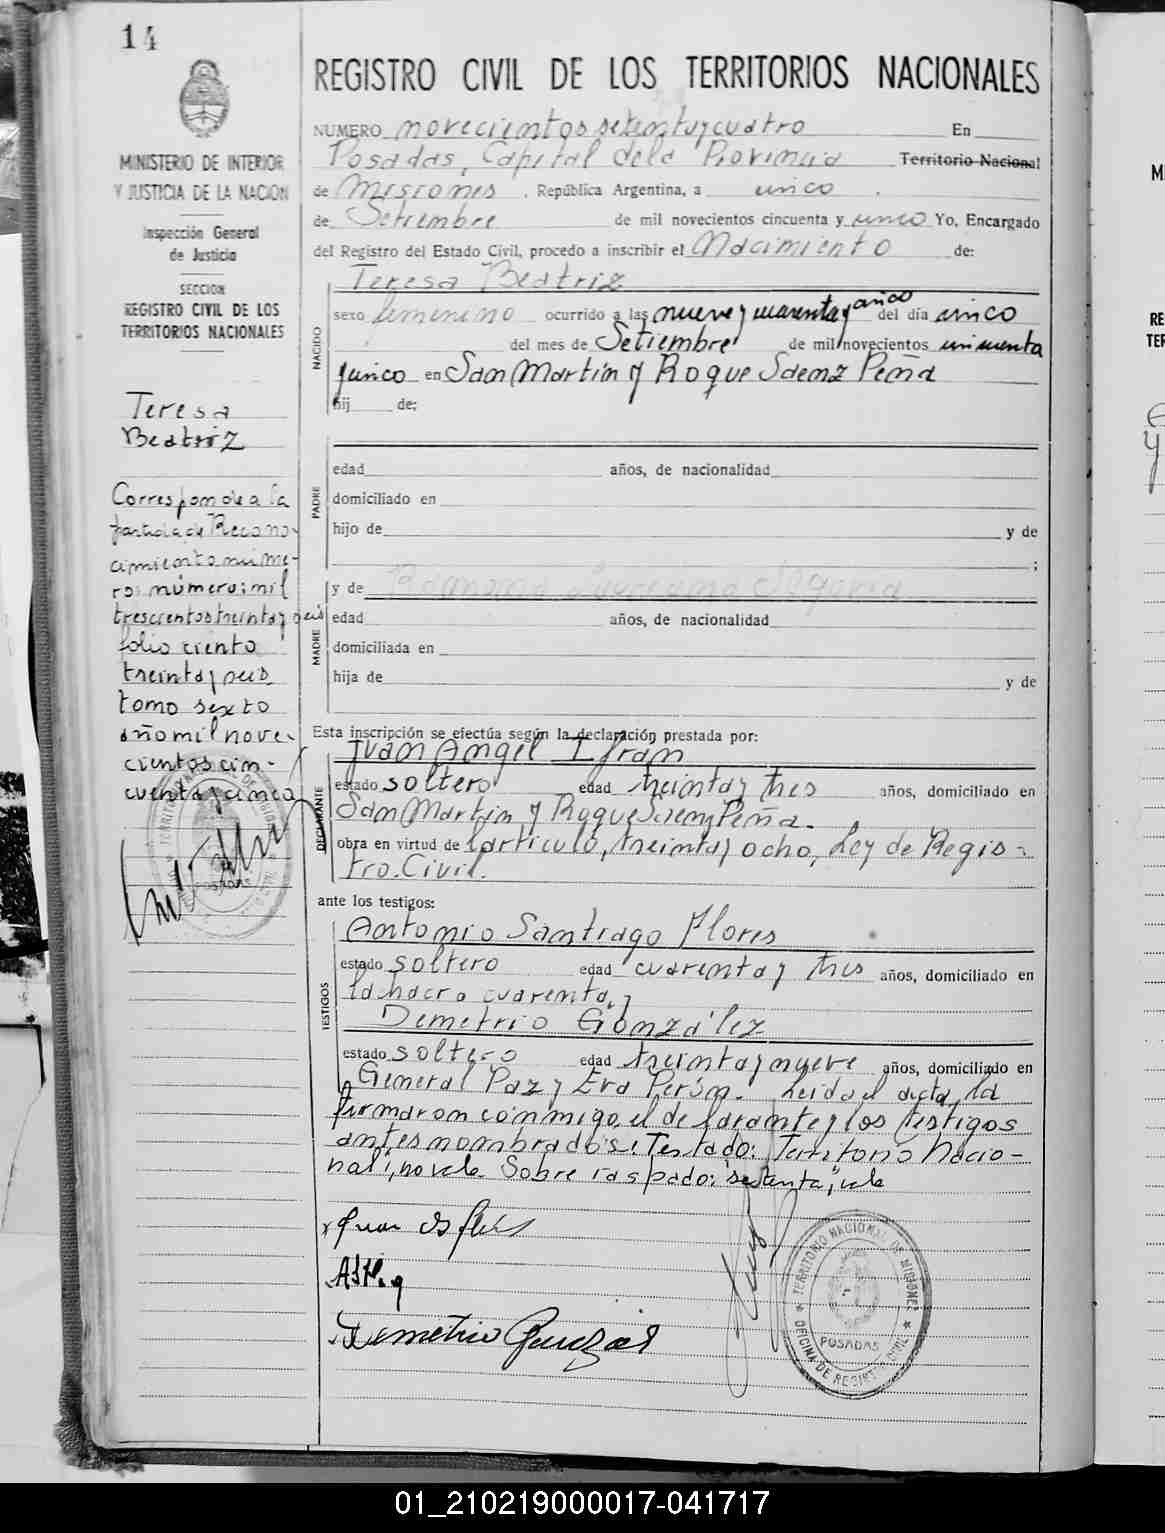 14
REGISTRO CIVIL DE LOS TERRITORIOS NACIONALES
MINISTERIO DE INTERIOR
Y JUSTICIA DE LA NACIÓN
Inspección General
de Justicia
SECCION
REGISTRO CIVIL DE LOS
TERRITORIOS NACIONALES
Teresa
Beatriz
Corresponde a la
partida de Recono-
cimiento nume-
ro: número: mil
trescientos treinta y seis
folio ciento
treinta y seis
tomo sexto
año mil nove-
cientos cin-
cuenta y cinco
NUMERO novecientos setenta y cuatro En
Posadas, Capital de la Provincia Territorio Nacional
de Misiones, República Argentina, a cinco
de Setiembre de mil novecientos cincuenta y cinco Yo, Encargado
del Registro del Estado Civil, procedo a inscribir el Nacimiento de:
Teresa Beatriz
NACIDO
sexo femenino ocurrido a las nueve y cuarenta y cinco del día cinco
del mes de Setiembre de mil novecientos cincuenta
y cinco en San Martin y Roque Saenz Peña
hij de:
PADRE
edad años, de nacionalidad
domiciliado en
hijo de y de
;
MADRE
y de Ramona
edad años, de nacionalidad
domiciliada en
hija de y de
Esta inscripción se efectúa según la declaración prestada por:
DECLARANTE
Juan Angel Ifran
estado soltero edad treinta y tres años, domiciliado en
San Martin y Roque Saenz Peña.
obra en virtud de l'articulo, treinta y ocho, Ley de Regis-
tro. Civil.
ante los testigos:
TESTIGOS
Antonio Santiago Flores
estado soltero edad cuarenta y tres años, domiciliado en
la hacra cuarenta, y
Demetrio González
estado soltero edad treinta y nueve años, domiciliado en
General Paz y Eva Perón. Leida el acta, la
firmaron conmigo, el declarante y los testigos
antes nombrados: Testado: Territorio Nacio-
nal; no vale. Sobre raspado: "setenta", vale
Demetrio
TERRITORIO NACIONAL DE MISIONES
POSADAS
OFICINA DE REGISTRO CIVIL
POSADAS
01_210219000017-041717